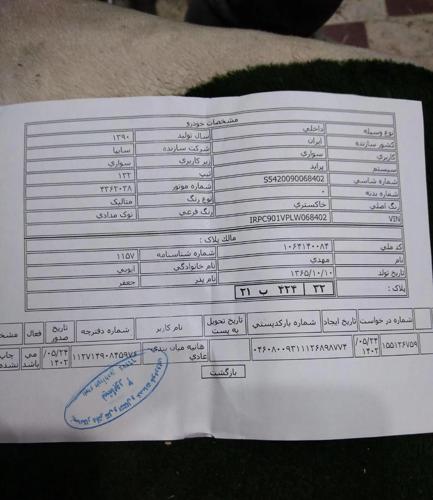 مشخصات خودرو
نوع وسیله داخلی سال تولید ۱۳۹۰
کشور سازنده ایران شرکت سازنده سایپا
کاربری سواری زیر کاربری سواری
سیستم پراید تیپ ۱۳۲
شماره شاسی S5420090068402 شماره موتور ۴۳۶۲۰۳۸
شماره بدنه ۰ نوع رنگ متالیک
رنگ اصلی خاکستری رنگ فرعی نوک مدادی
VIN IRPC901VPLW068402
مالک پلاک :
کد ملی ۱۰۶۴۱۴۰۰۸۴ شماره شناسنامه ۱۱۵۷
نام مهدی نام خانوادگی ایوبی
تاریخ تولد ۱۳۶۵/۱۰/۱۰ نام پدر جعفر
پلاک :
شماره در خواست تاریخ ایجاد شماره بارکدپستی تاریخ تحویل به پست نام کاربر شماره دفترچه تاریخ صدور فعال
۱۵۵۱۲۶۷۵۹ /۰۵/۲۴ ۱۴۰۲ هانیه میان بندی عادی /۰۵/۲۴ ۱۴۰۲ می باشد چاپ نشده
بازگشت